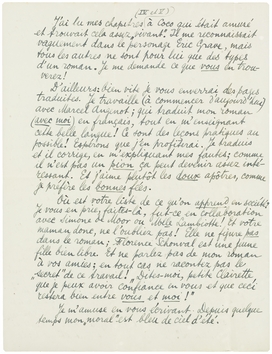 (IV et V)
J'ai lu mes chapitres à Coco qui était amusé
et trouvait cela assez vivant. Il me reconnaissait
vaguement dans le personnage Eric Grave, mais
tous les autres ne sont pour lui que des types
d'un roman. Je me demande ce que vous en trou-
verez!
D'ailleurs: bien vite vous en verrez des pages
traduites. Je travaille (à commencer d'aujourd'hui)
avec Marcel, qui traduit mon roman
(avec moi) en français, tout en m'enseignant
cette belle langue! Ce sont des leçons pratiques au
possible! Espérons que j'en profiterai. Je traduis
et il corrige, en m'expliquant mes fautes; comme
il n'est pas un pion ça peut devenir assez inté-
ressant. Et j'aime plutôt les doux apôtres, comme
je préfère les bonnes
Où est votre liste de ce qu'on apprend en société?
Je vous en prie, faites-la, tut-ce en collaboration
avec Simone et
maman donc, ne l'oubliez pas! Elle ne figure pas
dans le roman; Florence est une jeune
fille bien libre. Et ne parlez pas de mon roman
à vos amies; en tout cas ne racontez pas le
"secret" de ce travail! Dites-moi, petite Clairette
que je peux avoir confiance en vous et que ceci
restera bien entre vous et moi!"
Je m'amuse en vous écrivant. Depuis quelque
temps mon moral est bleu de ciel d'été.